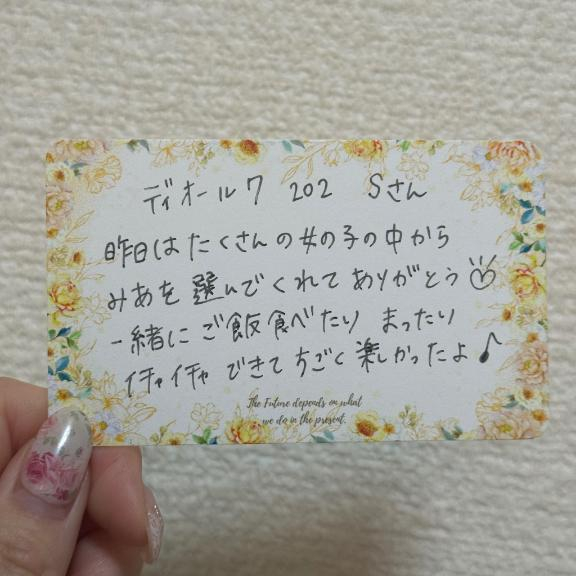 ディオール7 202 Sさん
昨日はたくさんの女の子の中から
みあを選んでくれてありがとう♡
一緒にご飯食べたり まったり
イチャイチャできてすごく楽しかったよ♪
The Future depends on what
we do in the present.